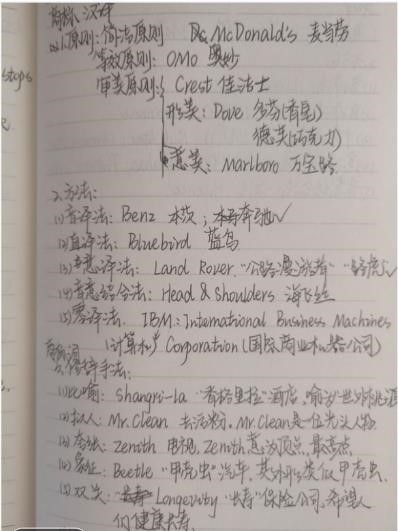 商标 汉译
1.原则: 简洁原则 McDonald's 麦当劳
等效原则: OMO 奥妙
审美原则: Crest 佳洁士
形美: Dove 多芬(香皂)
德芙(巧克力)
意美: Marlboro 万宝路
stops
2.方法:
(1)音译法: Benz 本茨; 奔驰✓
(2)直译法: Bluebird 蓝鸟
(3)意译法: Land Rover "公路漫游者" "路虎"✓
(4)音意结合法: Head & Shoulders 海飞丝
(5)零译法. IBM: International Business Machines
(计算机) Corporation (国际商业机器公司)
商标词
3.修辞手法:
(1)比喻: Shangri-la "香格里拉"酒店, 喻为"世外桃源
(2)拟人: Mr.Clean 去污粉. Mr.Clean是一位光头人物
(3)夸张: Zenith 电视, Zenith意为顶点, 最高点
(4)象征: Beetle "甲壳虫"汽车, 其外形类似甲壳虫.
(5)双关: Longevity "长寿"保险公司, 希望人
们健康长寿.